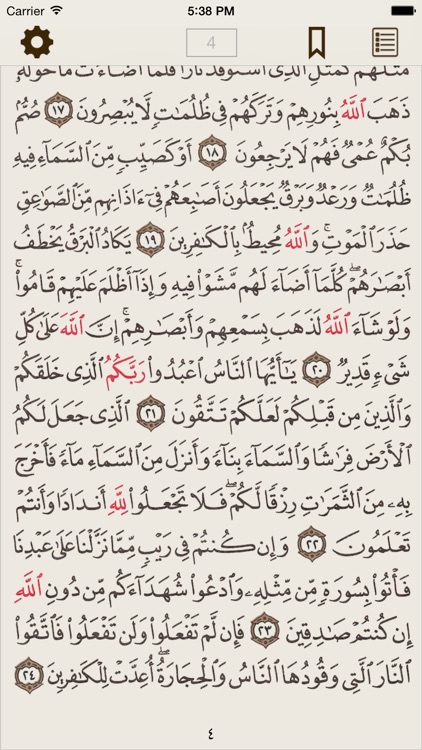 Carrier 5:38 PM
4
مَثَلُهُمْ كَمَثَلِ ٱلَّذِى ٱسْتَوْقَدَ نَارًا فَلَمَّآ أَضَآءَتْ مَا حَوْلَهُۥ
ذَهَبَ ٱللَّهُ بِنُورِهِمْ وَتَرَكَهُمْ فِى ظُلُمَٰتٍ لَّا يُبْصِرُونَ ١٧ صُمٌّۢ
بُكْمٌ عُمْىٌ فَهُمْ لَا يَرْجِعُونَ ١٨ أَوْ كَصَيِّبٍ مِّنَ ٱلسَّمَآءِ فِيهِ
ظُلُمَٰتٌ وَرَعْدٌ وَبَرْقٌ يَجْعَلُونَ أَصَٰبِعَهُمْ فِىٓ ءَاذَانِهِم مِّنَ ٱلصَّوَٰعِقِ
حَذَرَ ٱلْمَوْتِ ۚ وَٱللَّهُ مُحِيطٌۢ بِٱلْكَٰفِرِينَ ١٩ يَكَادُ ٱلْبَرْقُ يَخْطَفُ
أَبْصَٰرَهُمْ ۖ كُلَّمَآ أَضَآءَ لَهُم مَّشَوْا۟ فِيهِ وَإِذَآ أَظْلَمَ عَلَيْهِمْ قَامُوا۟ ۚ
وَلَوْ شَآءَ ٱللَّهُ لَذَهَبَ بِسَمْعِهِمْ وَأَبْصَٰرِهِمْ ۚ إِنَّ ٱللَّهَ عَلَىٰ كُلِّ
شَىْءٍ قَدِيرٌ ٢٠ يَٰٓأَيُّهَا ٱلنَّاسُ ٱعْبُدُوا۟ رَبَّكُمُ ٱلَّذِى خَلَقَكُمْ
وَٱلَّذِينَ مِن قَبْلِكُمْ لَعَلَّكُمْ تَتَّقُونَ ٢١ ٱلَّذِى جَعَلَ لَكُمُ
ٱلْأَرْضَ فِرَٰشًا وَٱلسَّمَآءَ بِنَآءً وَأَنزَلَ مِنَ ٱلسَّمَآءِ مَآءً فَأَخْرَجَ
بِهِۦ مِنَ ٱلثَّمَرَٰتِ رِزْقًا لَّكُمْ ۖ فَلَا تَجْعَلُوا۟ لِلَّهِ أَندَادًا وَأَنتُمْ
تَعْلَمُونَ ٢٢ وَإِن كُنتُمْ فِى رَيْبٍ مِّمَّا نَزَّلْنَا عَلَىٰ عَبْدِنَا
فَأْتُوا۟ بِسُورَةٍ مِّن مِّثْلِهِۦ وَٱدْعُوا۟ شُهَدَآءَكُم مِّن دُونِ ٱللَّهِ
إِن كُنتُمْ صَٰدِقِينَ ٢٣ فَإِن لَّمْ تَفْعَلُوا۟ وَلَن تَفْعَلُوا۟ فَٱتَّقُوا۟
ٱلنَّارَ ٱلَّتِى وَقُودُهَا ٱلنَّاسُ وَٱلْحِجَارَةُ ۖ أُعِدَّتْ لِلْكَٰفِرِينَ ٢٤
٤